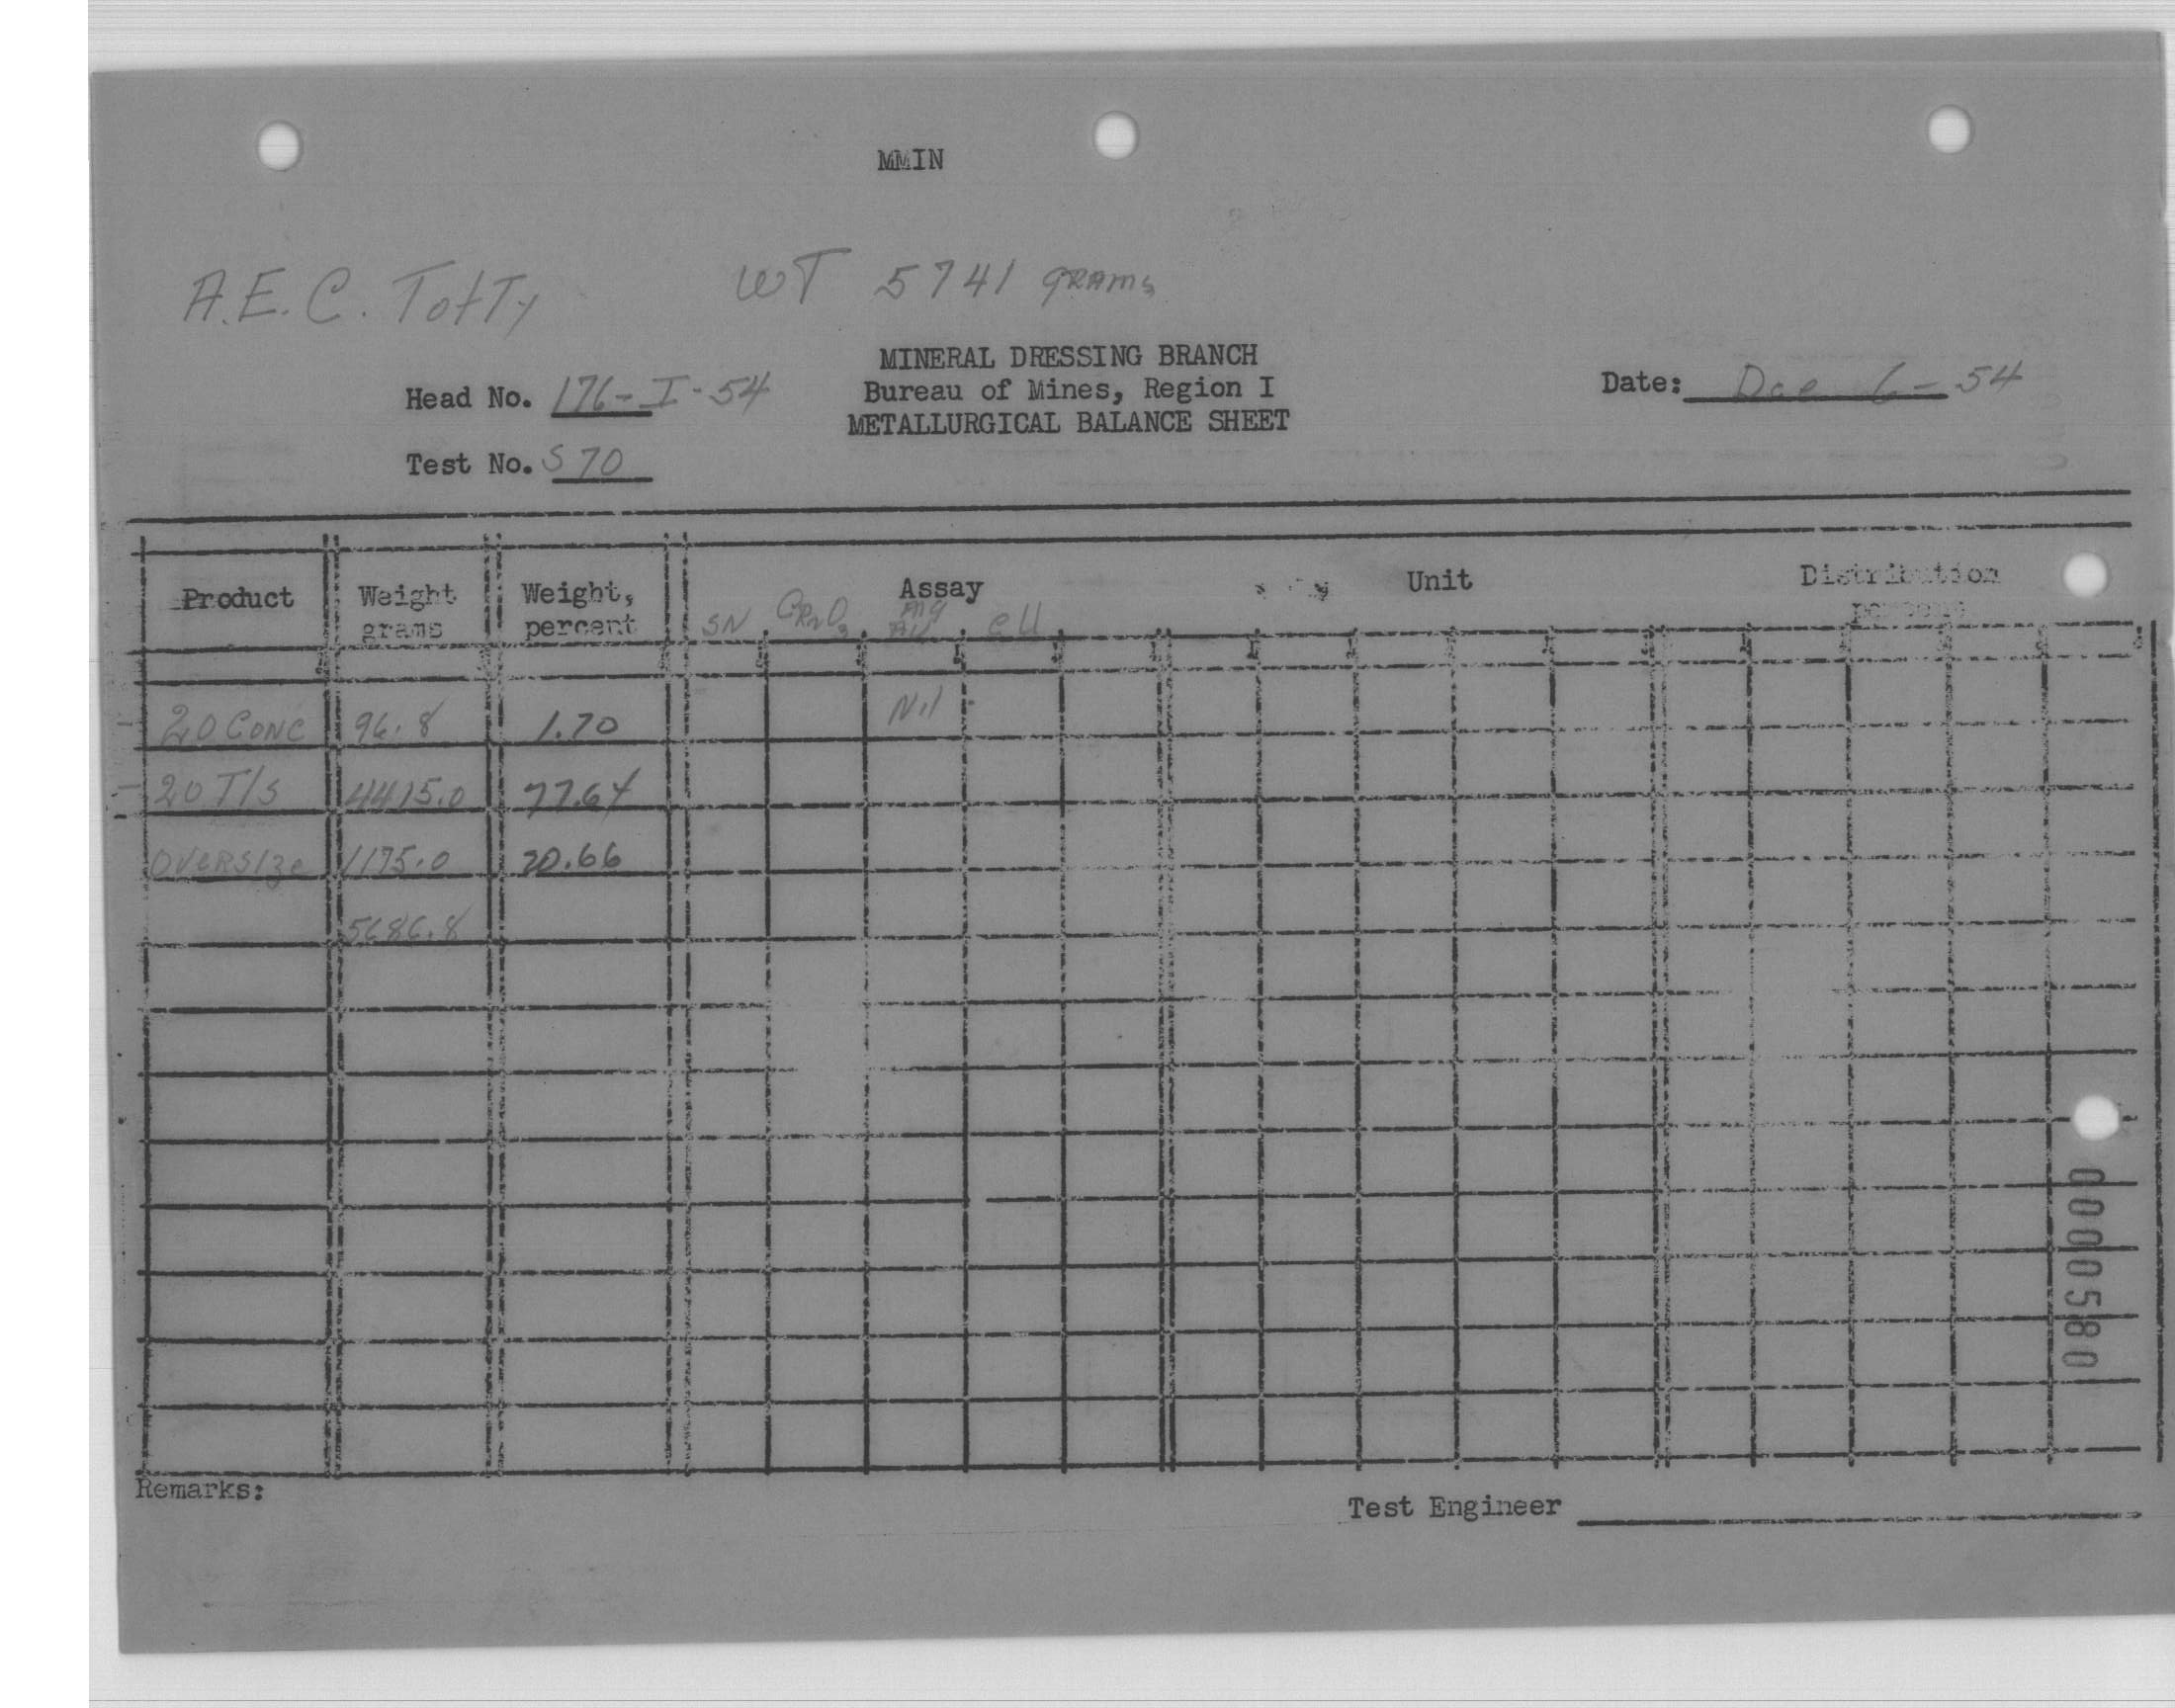 MMIN
A.E.C. Totty WT 5741 grams
MINERAL DRESSING BRANCH
Head No. 176-I-54 Bureau of Mines, Region I Date: Dec 6-54
METALLURGICAL BALANCE SHEET
Test No. S 70
Product Weight grams Weight, percent Assay Unit Distribution percent
SN Cr2O3 mg AU eU
20 CONC 96.8 1.70 Nil
20 T/S 4415.0 77.64
OVERSIZE 1175.0 20.66
5686.8
Remarks:
Test Engineer
0000580